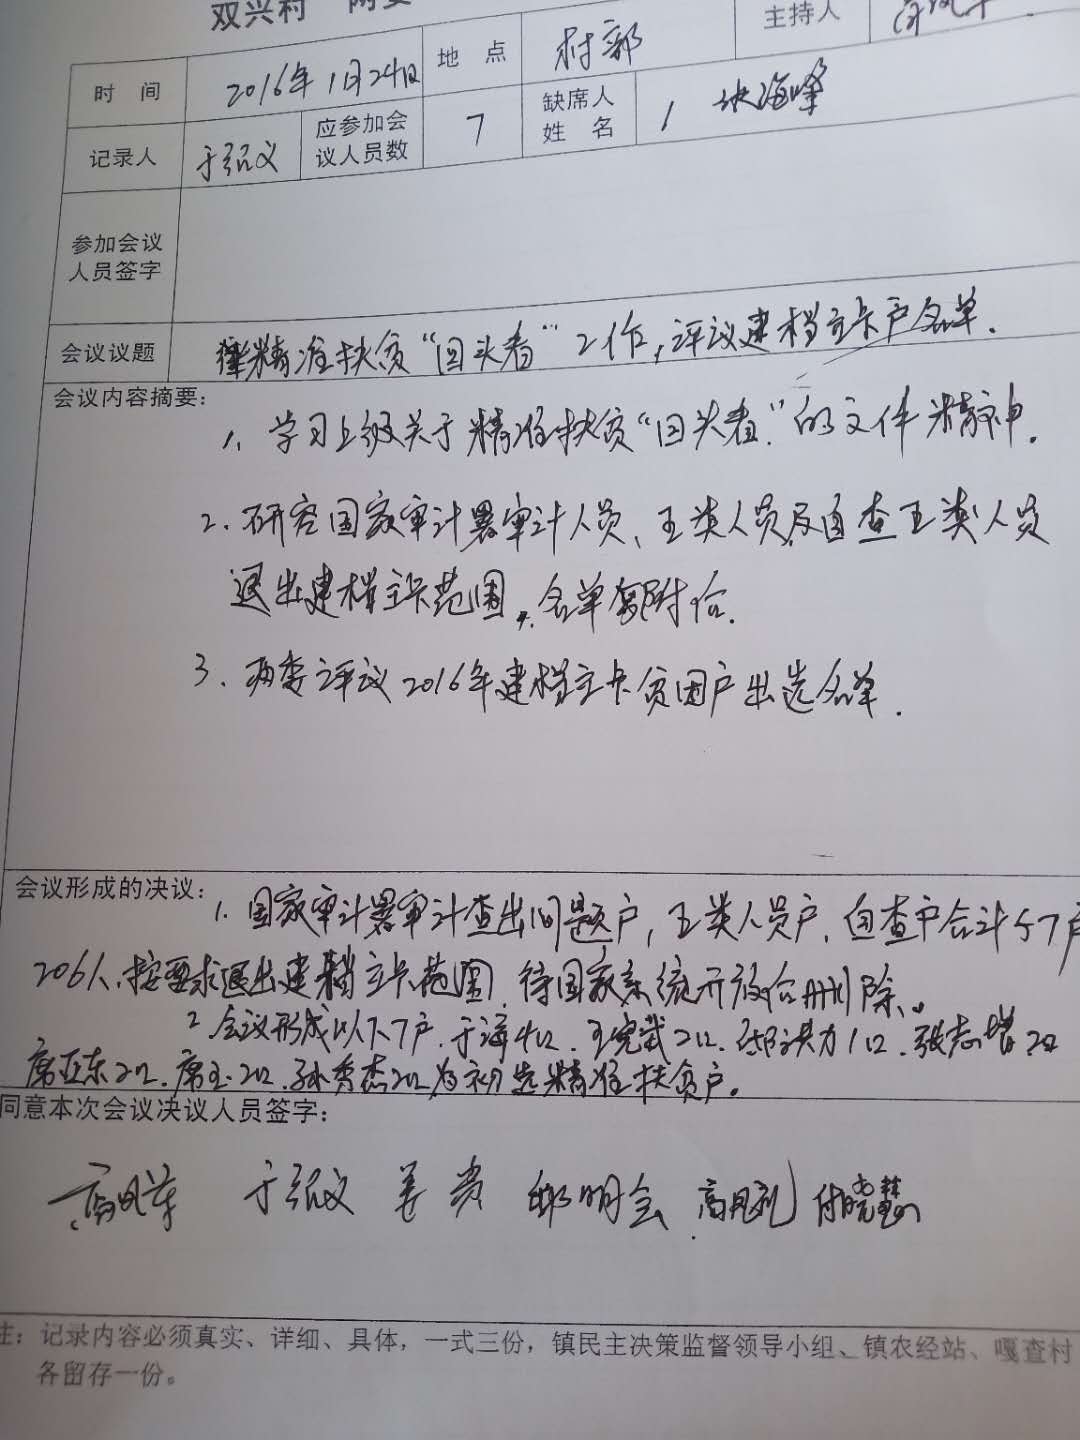 双兴村 两委
主持人
时间 2016年1月24日 地点 村部
记录人 于绍义 应参加会议人员数 7 缺席人姓名 1 张海峰
参加会议人员签字
会议议题 精准扶贫“回头看”工作,评议建档立卡户名单.
会议内容摘要:
1、学习上级关于精准扶贫“回头看”的文件精神.
2.研究国家审计署审计人员、五类人员及自查五类人员
退出建档立卡范围.名单附后.
3、两委评议2016年建档立卡贫困户出选名单.
会议形成的决议:
1.国家审计署审计查出问题户,五类人员户,自查户合计57户
206人,按要求退出建档立卡范围,待国家系统开放后删除.
2 会议形成以下7户.于海4口.王宪武2口. 洪力1口.张志增2口
席亚东2口.席玉2口.孙秀杰2口为初选精准扶贫户。
同意本次会议决议人员签字:
高凤 于绍义 姜贵 邹明会 高凤 付晓慧
注:记录内容必须真实、详细、具体,一式三份,镇民主决策监督领导小组、镇农经站、嘎查村
各留存一份。